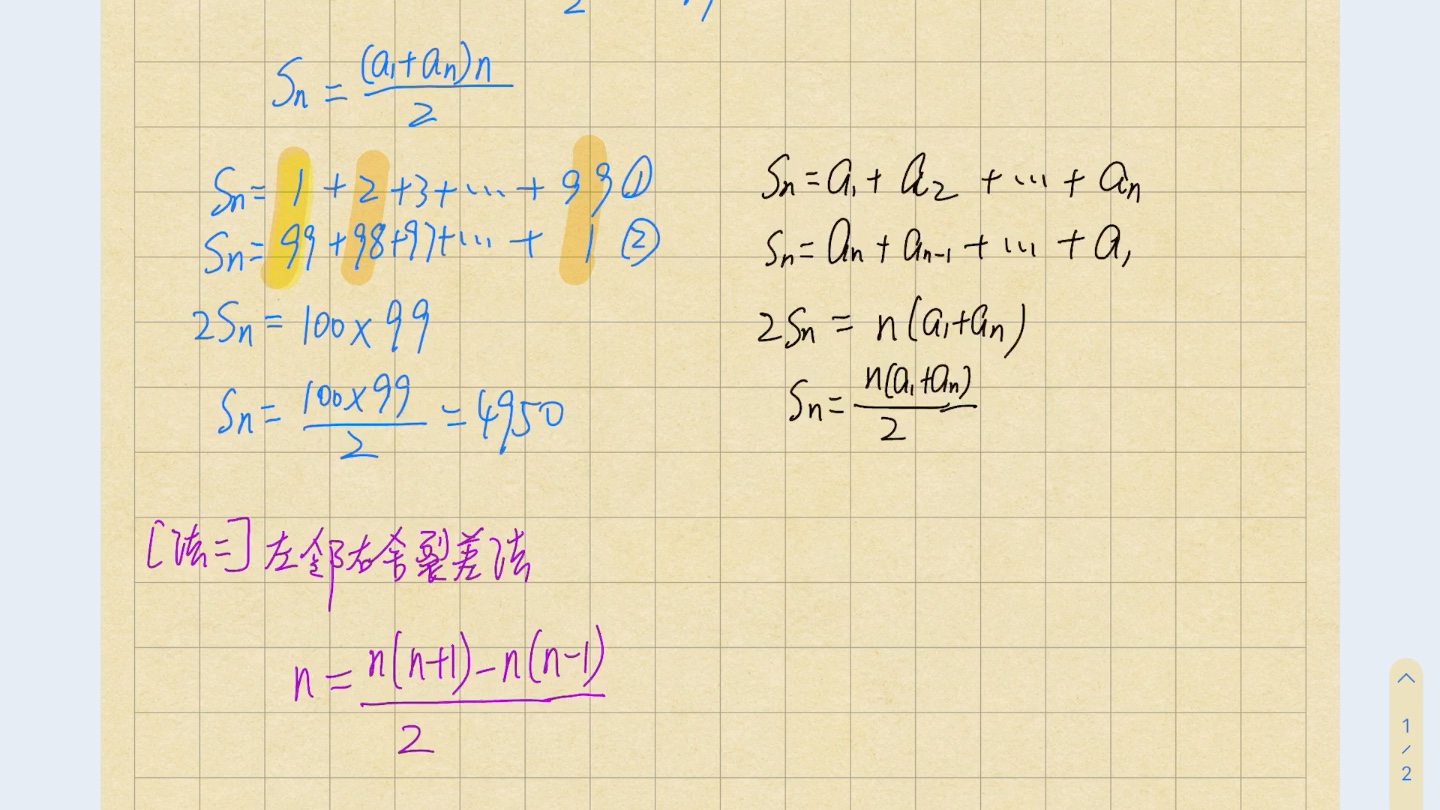 Sn = (a₁+an)n / 2
Sn = 1 + 2 + 3 + ... + 99 ①
Sn = 99 + 98 + 97 + ... + 1 ②
2Sn = 100 × 99
Sn = 100×99 / 2 = 4950
Sn = a₁ + a₂ + ... + an
Sn = an + an-1 + ... + a₁
2Sn = n(a₁+an)
Sn = n(a₁+an) / 2
[法二] 左邻右舍裂差法
n = n(n+1)-n(n-1) / 2
1/2